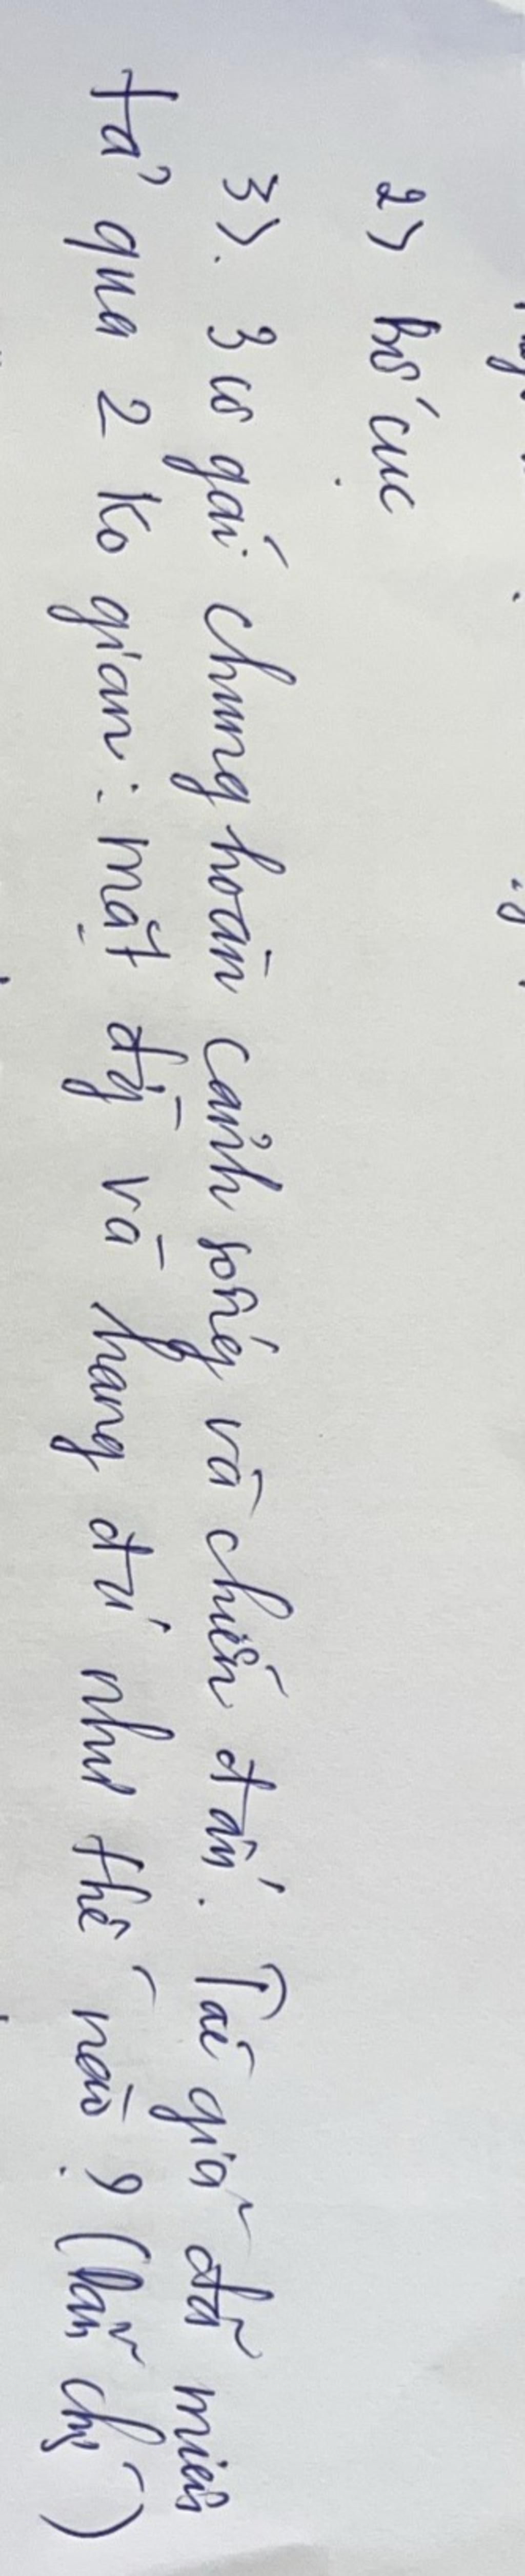 2) Bố cục
3). 3 cô gái chung hoàn cảnh sống và chiến đấu. Tác giả đã miêu
tả qua 2 ko gian: mặt đ và hang đá như thế nào? (dẫn chứ)